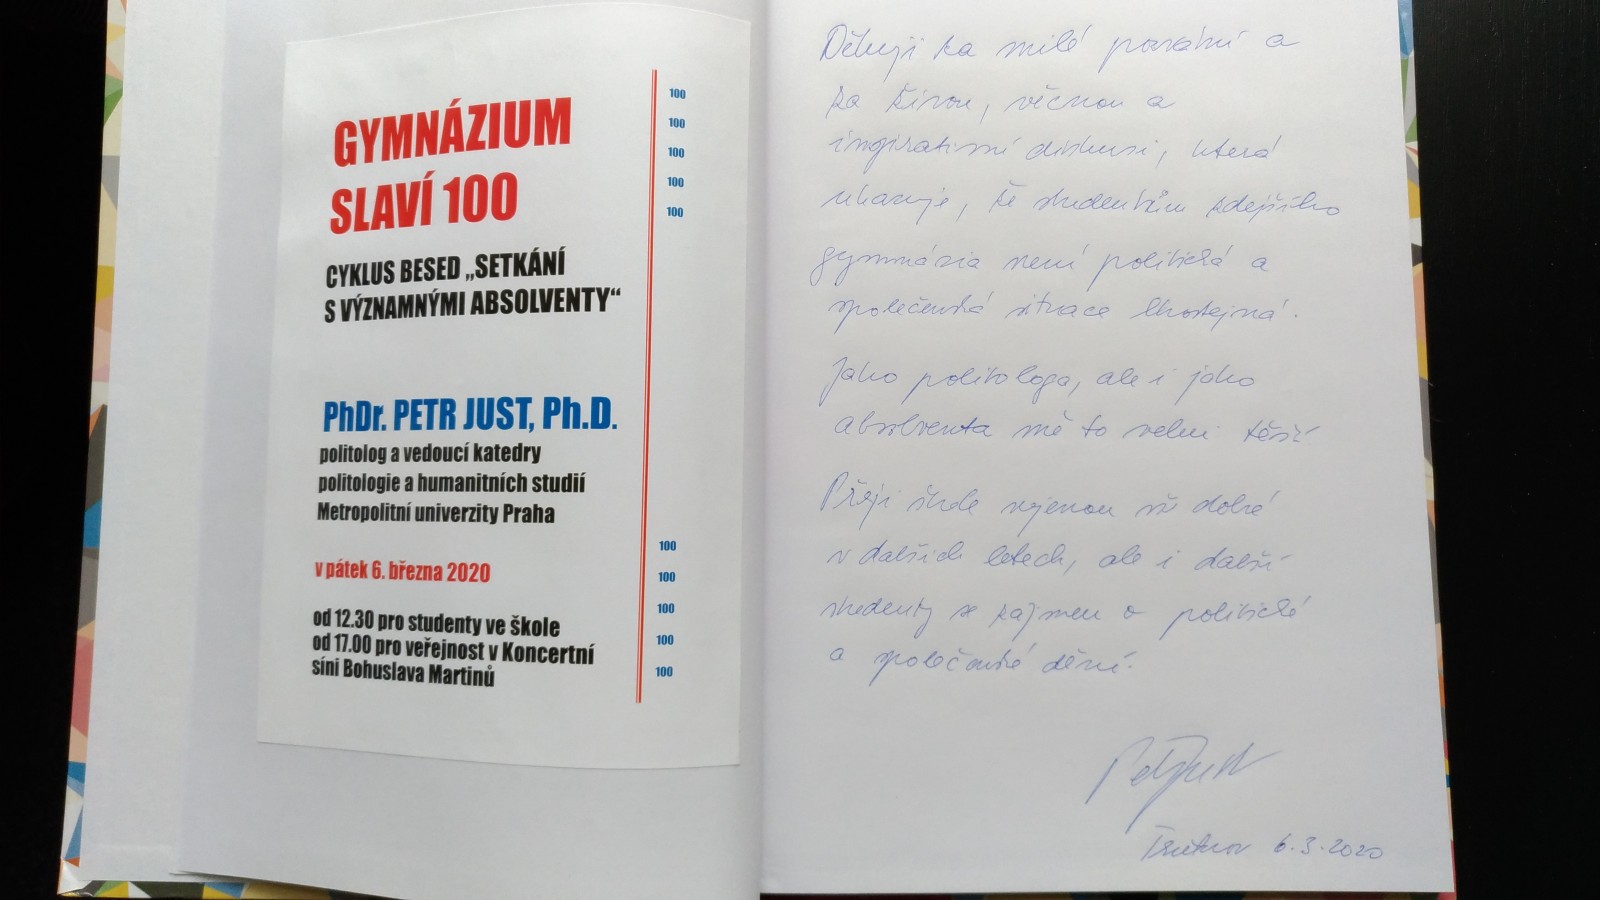 GYMNÁZIUM
SLAVÍ 100
CYKLUS BESED „SETKÁNÍ
S VÝZNAMNÝMI ABSOLVENTY“
PhDr. PETR JUST, Ph.D.
politolog a vedoucí katedry
politologie a humanitních studií
Metropolitní univerzity Praha
v pátek 6. března 2020
od 12.30 pro studenty ve škole
od 17.00 pro veřejnost v Koncertní
síni Bohuslava Martinů
100
100
100
100
100
100
100
100
100
100
Děkuji za milé pozvání a
za živou, věcnou a
inspirativní diskusi, která
ukazuje, že studentům zdejšího
gymnázia není politická a
společenská situace lhostejná.
Jako politologa, ale i jako
absolventa mě to velmi těší
Přeji škole nejenom vše dobré
v dalších letech, ale i další
studenty se zájmem o politické
a společenské dění.
Petr Just
Trutnov 6.3.2020